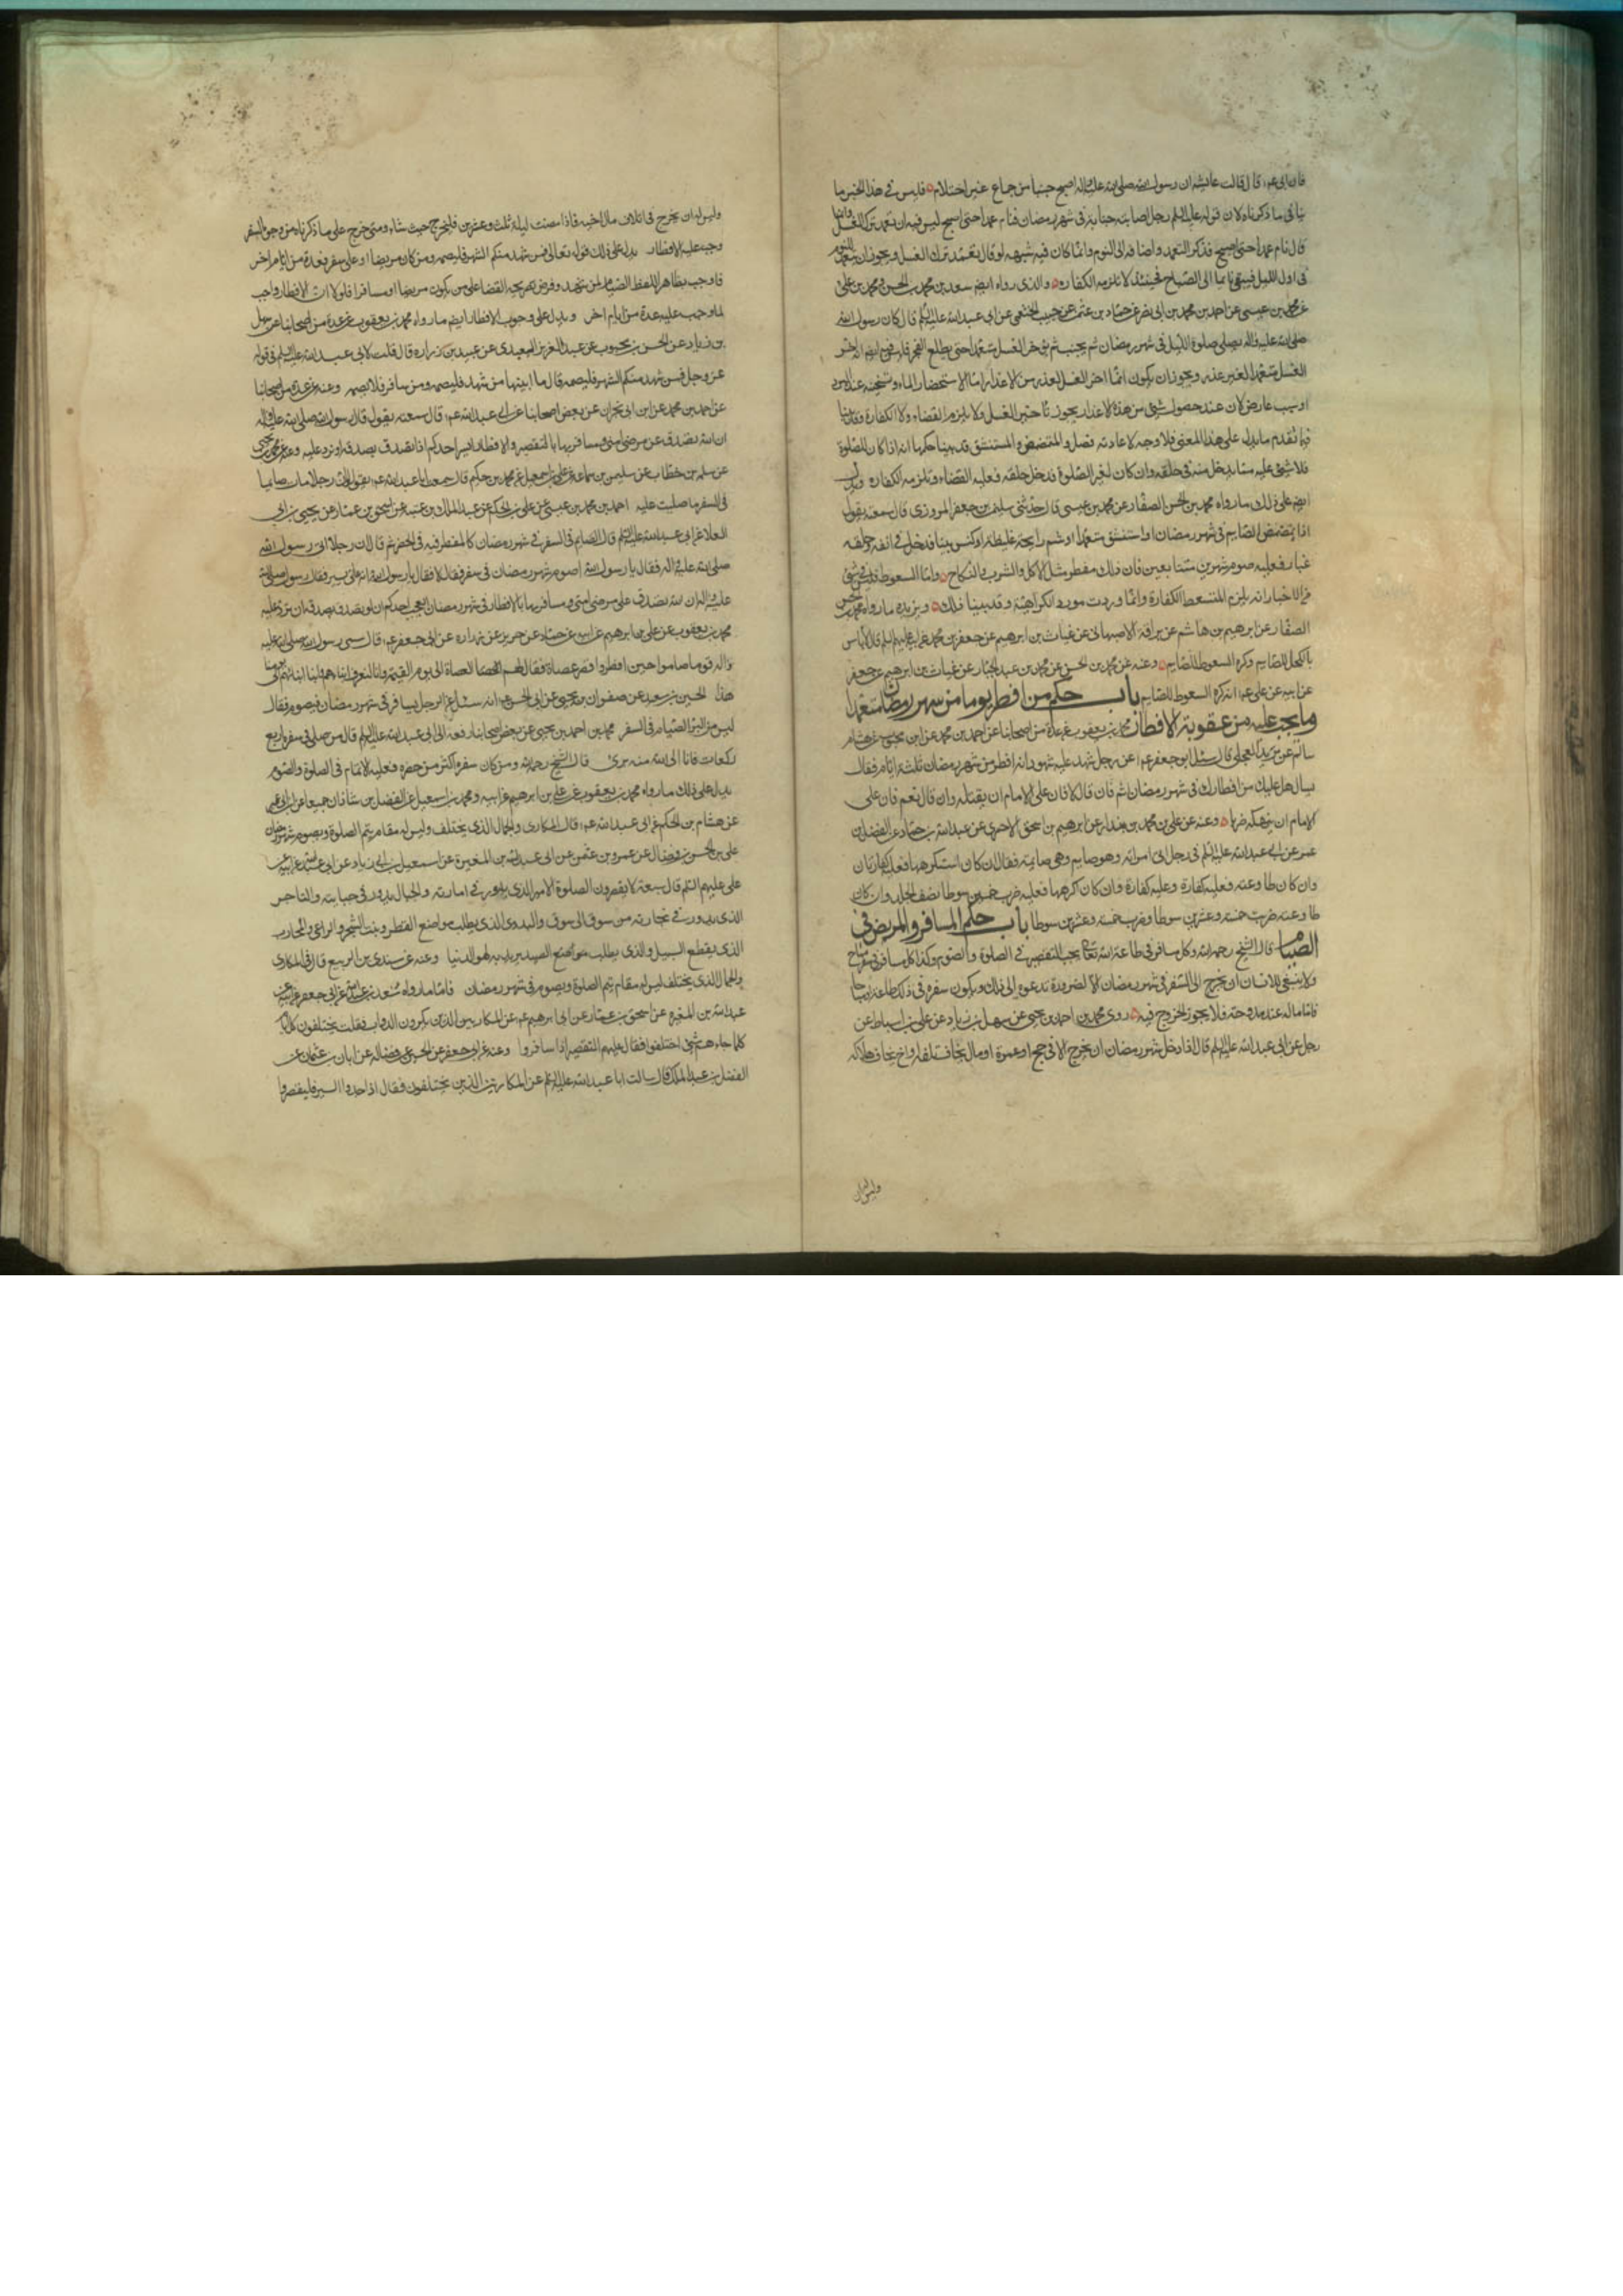 فان ابى عم؛ قال قالت عايشه ان رسول الله صلى الله عليه واله اصبح جنبا من جماع غير احتلام فليس في هذا الخبر ما
ينافى ما ذكرناه لان قوله عليه السلم رجل اصابته جنابة فى شهر رمضان فنام عمدا حتى اصبح ليس فيه ان تعمد ترك الغسل وانما
قال نام عمدا حتى اصبح فذكر التعمد واضافه الى النوم وانما كان فيه شبهه لو قال تعمد ترك الغسل ويجوز ان يتعمد النوم
فى اول الليل فيبقى نايما الى الصباح فحينئذ لا تلزمه الكفاره والذى رواه ايضم سعد بن محمد بن الحسن ومحمد بن على
عن بن عيسى عن احمد بن محمد بن ابى نصر عن حماد بن عثمن عن حبيب الخثعمى عن ابى عبد الله عليه السلم قال كان رسول الله
صلى الله عليه واله يصلى صلوة الليل فى شهر رمضان ثم يجنب ثم يوخر الغسل متعمدا حتى يطلع الفجر فليس فيه ايضم انه اخر
الغسل متعمدا لغير عذر ويجوز ان يكون انما اخر الغسل لعذر من الاعذار اما لاستحضار الماء او تسخينه عند البرد
او سبب عارض لان عند حصول شئ من هذه الاعذار يجوز تاخير الغسل ولا يلزم القضاء ولا الكفارة وقد بينا
فيما تقدم ما يدل على هذا المعنى فلا وجه لاعادته فصل والمتمضمض والمستنشق قد بينا حكمهما انه اذا كان للصلوة
فلا شئ عليه مما يدخل منه فى حلقه وان كان لغير الصلوة فدخل حلقه فعليه القضاء وتلزمه الكفاره ويدل
ايضم على ذلك ما رواه محمد بن الحسن الصفار عن محمد بن عيسى قال حدثنى سليمن بن جعفر المروزى قال سمعته يقول
اذا تمضمض الصايم فى شهر رمضان او استنشق متعمدا او شم رايحة غليظة او كنس بيتا فدخل فى انفه وحلقه
غبار فعليه صوم شهرين متتابعين فان ذلك مفطر مثل الاكل والشرب والنكاح واما السعوط فليس فى شئ
من الاخبار انه يلزم المتسعط الكفارة وانما وردت مورد الكراهية وقد بينا ذلك ويزيده ما رواه محمد بن الحسن
الصفار عن ابرهيم بن هاشم عن الاصبهانى عن غياث بن ابرهيم عن جعفر بن محمد عن ابيه عليهم السلم قال لا باس
بالكحل للصايم وكره السعوط للصايم وعنه عن محمد بن الحسين عن محمد بن عبد الجبار عن غياث بن ابرهيم عن جعفر
عن ابيه عن على عم؛ انه كره السعوط للصايم باب حكم من افطر يوما من شهر رمضان متعمدا
وما يجب عليه من عقوبة الافطار محمد بن يعقوب عن عدة من اصحابنا عن احمد بن محمد عن ابن محبوب عن هشام
سالم عن بريد العجلى قال سئل ابو جعفر عم؛ عن رجل شهد عليه شهود انه افطر من شهر رمضان ثلثة ايام فقال
يسال هل عليك من افطارك فى شهر رمضان اثم فان قال لا فان على الامام ان يقتله وان قال نعم فان على
الامام ان ينهكه ضربا وعنه عن على بن محمد بن بندار عن ابرهيم بن اسحق الاحمرى عن عبد الله بن حماد عن المفضل بن
عمر عن ابى عبد الله عليه السلم فى رجل اتى امراته وهو صايم وهى صايمة فقال ان كان استكرهها فعليه كفارتان
وان كان طاوعته فعليه كفارة وعليها كفارة وان كان اكرهها فعليه ضرب خمسين سوطا نصف الحد وان كان
طاوعته ضرب خمسة وعشرين سوطا وضربت خمسة وعشرين سوطا باب حكم المسافر والمريض فى
الصيام قال الشيخ رحمه الله وكل مسافر فى طاعة الله تعالى يجب التقصير فى الصلوة والصوم وكذا كل مسافر فى مباح
ولا ينبغى للانسان ان يخرج الى السفر فى شهر رمضان الا لضرورة تدعوه الى ذلك ويكون سفره فى ذلك طاعة او مباحا
فاما ما له عنه مندوحة فلا يجوز الخروج فيه روى محمد بن احمد بن يحيى عن سهل بن زياد عن على بن اسباط عن
رجل عن ابى عبد الله عليه السلم قال اذا دخل شهر رمضان ان يخرج الا فى حج او عمرة او مال يخاف تلفه او اخ يخاف هلاكه
وليس له ان
وليس له ان يخرج فى اتلاف مال اخيه فاذا مضت ليلة ثلث وعشرين فليخرج حيث شاء ومتى خرج على ما ذكرناه من وجوه السفر
وجب عليه الافطار يدل على ذلك قوله تعالى فمن شهد منكم الشهر فليصمه ومن كان مريضا او على سفر فعدة من ايام اخر
فاوجب بظاهر اللفظ الصيام لمن شهد وفرض بصريحه القضا على من يكون مريضا او مسافرا فلولا ان الافطار واجب
لما وجب عليه عدة من ايام اخر ويدل على وجوب الافطار ايضم ما رواه محمد بن يعقوب عن عدة من اصحابنا عن سهل
بن زياد عن الحسن بن محبوب عن عبد العزيز العبدى عن عبيد بن زراره قال قلت لابى عبد الله عليه السلم قوله
عز وجل فمن شهد منكم الشهر فليصمه قال ما ابينها من شهد فليصمه ومن سافر فلا يصمه وعنه عن عدة من اصحابنا
عن احمد بن محمد عن ابن ابى نجران عن بعض اصحابنا عن ابى عبد الله عم؛ قال سمعته يقول قال رسول الله صلى الله عليه واله
ان الله تصدق عن مرضى امتى ومسافريها بالتقصير والافطار ايسر احدكم اذا تصدق بصدقة ان ترد عليه وعنه عن محمد بن يحيى
عن سلمه بن خطاب عن سليمن بن سماعه عن على بن اسمعيل عن محمد بن حكيم قال سمعت ابا عبد الله عم؛ يقول لو ان رجلا مات صايما
فى السفر ما صليت عليه احمد بن محمد بن عيسى عن على بن الحكم عن عبد الملك بن عتبه عن اسحق بن عمار عن يحيى بن ابى
العلا عن ابى عبد الله عليه السلم قال الصايم فى السفر فى شهر رمضان كالمفطر فيه فى الحضر ثم قال ان رجلا اتى رسول الله
صلى الله عليه واله فقال يا رسول الله اصوم شهر رمضان فى سفر فقال لا فقال يا رسول الله انه على يسير فقال رسول الله صلى الله
عليه واله ان الله تصدق على مرضى امتى ومسافريها بالافطار فى شهر رمضان ايعجب احدكم ان لو تصدق بصدقة ان ترد عليه
محمد بن يعقوب عن على بن ابرهيم عن ابيه عن حماد عن حريز عن زراره عن ابى جعفر عم؛ قال سمى رسول الله صلى الله عليه
واله قوما صاموا حين افطر وقصر عصاة فقال هم العصاة الى يوم القيمة وانا لنعرف ابناءهم وابناء ابنائهم الى يومنا
هذا الحسين بن سعيد عن صفوان بن يحيى عن ابى الحسن عم؛ انه سئل عن الرجل يسافر فى شهر رمضان فيصوم فقال
ليس من البر الصيام فى السفر محمد بن احمد بن يحيى عن بعض اصحابنا رفعه الى ابى عبد الله عليه السلم قال من صلى فى سفره اربع
ركعات فانا الى الله منه برئ قال الشيخ رحمه الله ومن كان سفره اكثر من حضره فعليه الاتمام فى الصلوة والصوم
يدل على ذلك ما رواه محمد بن يعقوب عن على بن ابرهيم عن ابيه ومحمد بن اسمعيل عن الفضل بن شاذان جميعا عن ابن ابى عمير
عن هشام بن الحكم عن ابى عبد الله عم؛ قال المكارى والجمال الذى يختلف وليس له مقام يتم الصلوة ويصوم شهر رمضان
على بن الحسن بن فضال عن عمرو بن عثمن عن ابى عبد الله بن المغيرة عن اسمعيل بن ابى زياد عن ابى عبد الله عن ابيه عن
على عليهم السلم قال سبعة لا يقصرون الصلوة الامير الذى يدور فى امارته والجبال يدور فى جبايته والتاجر
الذى يدور فى تجارته من سوق الى سوق والبدوى الذى يطلب مواضع القطر ونبت الشجر والراعى والمحارب
الذى يقطع السبيل والذى يطلب مواضع الصيد يريد به لهو الدنيا وعنه عن سندى بن الربيع قال فى المكارى
والجمال الذى يختلف ليس له مقام يتم الصلوة ويصوم فى شهر رمضان فاما ما رواه سعد بن عبد الله عن ابى جعفر عن ابيه عن
عبد الله بن المغيره عن اسحق بن عمار عن ابى ابرهيم عم؛ عن المكاريين الذين يكرون الدواب فقلت يختلفون كل ايام
كلما جاءهم شئ اختلفوا فقال عليهم التقصير اذا سافروا وعنه عن ابى جعفر عن الحسين عن فضاله عن ابان بن عثمان عن
الفضل بن عبد الملك قال سالت ابا عبد الله عليه السلم عن المكارين الذين يختلفون فقال اذا جدوا السير فليقصروا